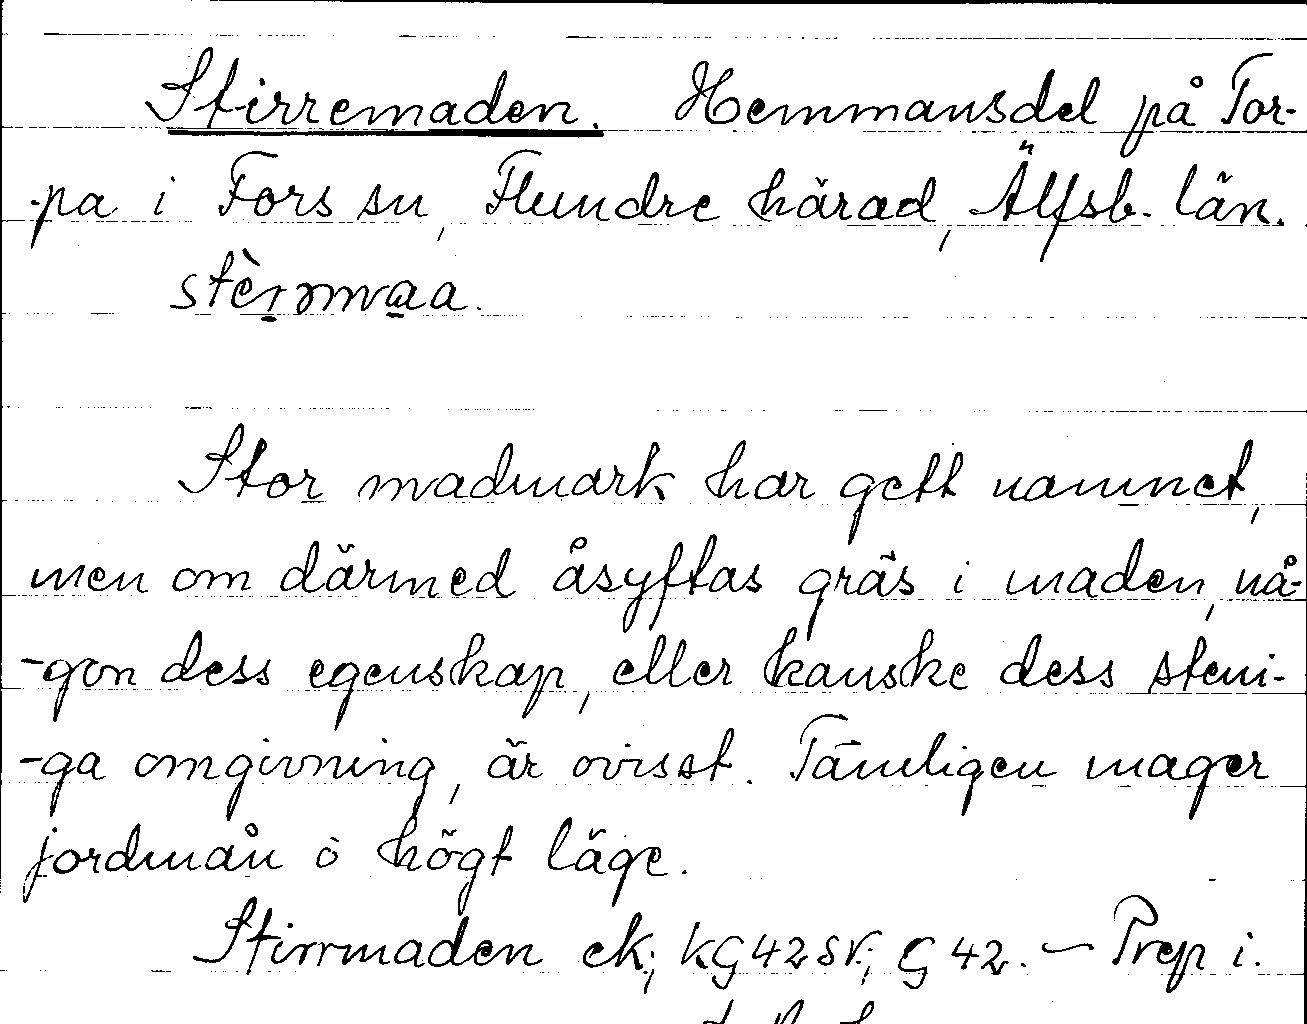 Stirremaden. Hemmansdel på Tor-
-pa i Fors sn, Flundre härad, Älfsb. län.
stèrəmaa.
Stor madmark har gett namnet,
men om därmed åsyftas gräs i maden, nå-
-gon dess egenskap, eller kanske dess steni-
-ga omgivning, är ovisst. Tämligen mager
jordmån o högt läge.
Stirrmaden ek; KG42SV; G 42. – Prep i.